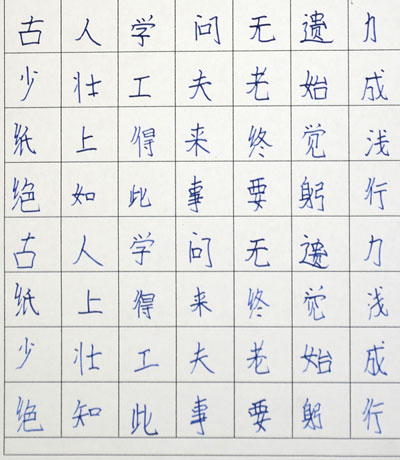 古人学问无遗力
少壮工夫老始成
纸上得来终觉浅
绝如此事要躬行
古人学问无遗力
纸上得来终觉浅
少壮工夫老始成
绝知此事要躬行